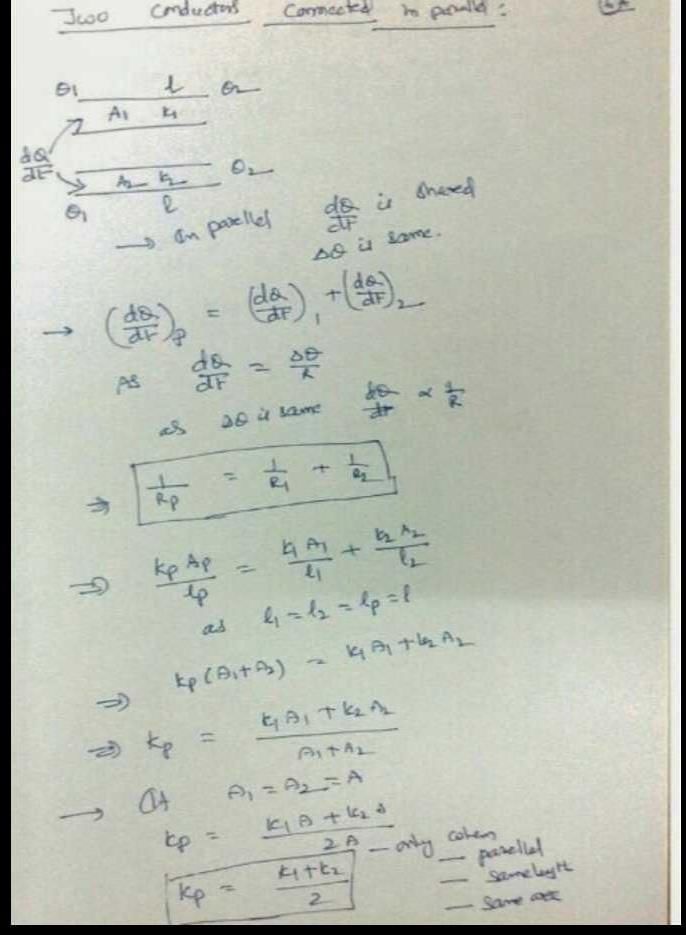 Two Conductors Connected in parallel :
θ1 l θ2
A1 K1
dQ/dt
A2 K2 θ2
θ1 l
→ In parellel dQ/dt is shared
Δθ is same.
→ (dQ/dt)p = (dQ/dt)1 + (dQ/dt)2
As dQ/dt = Δθ/R
as Δθ is same dQ/dt ∝ 1/R
⇒ 1/Rp = 1/R1 + 1/R2
⇒ KpAp/lp = K1A1/l1 + K2A2/l2
as l1 = l2 = lp = l
⇒ Kp(A1+A2) = K1A1 + K2A2
⇒ Kp = (K1A1 + K2A2)/(A1+A2)
→ If A1 = A2 = A
Kp = (K1A + K2A)/2A — only when
— parellel
Kp = (K1+K2)/2 — same length
— same